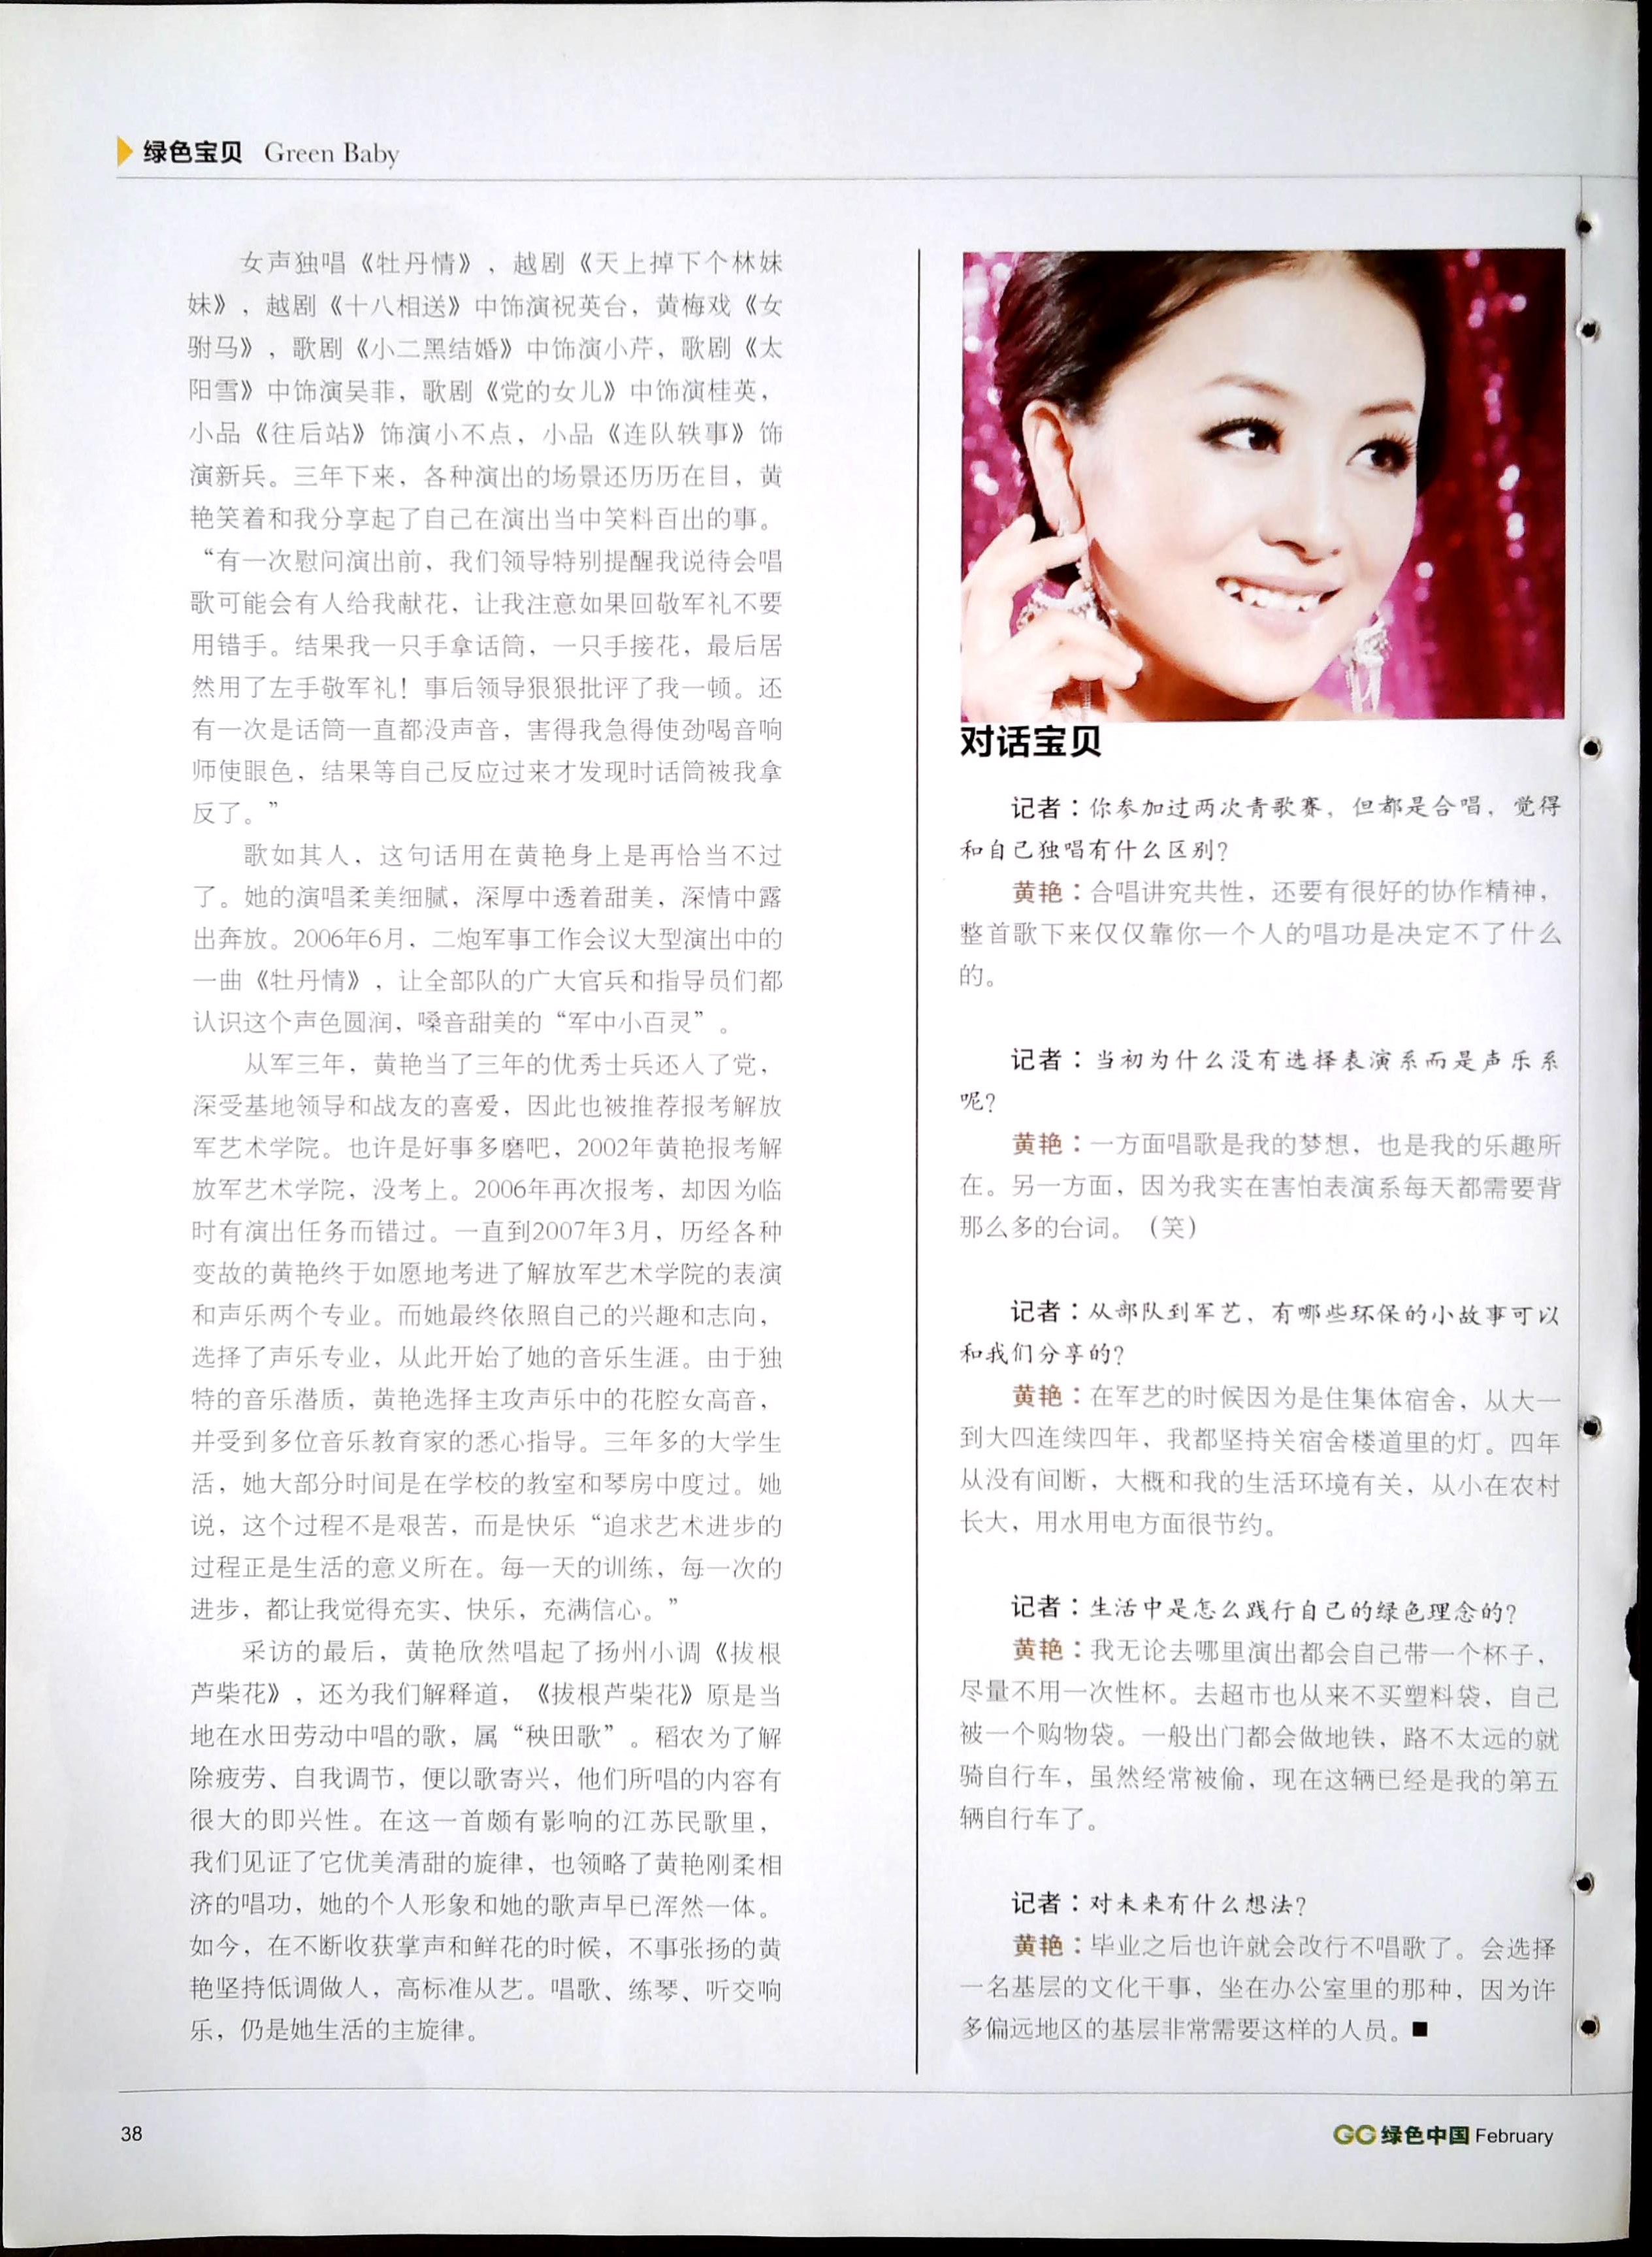 绿色宝贝 Green Baby
女声独唱《牡丹情》，越剧《天上掉下个林妹
妹》，越剧《十八相送》中饰演祝英台，黄梅戏《女
驸马》，歌剧《小二黑结婚》中饰演小芹，歌剧《太
阳雪》中饰演吴菲，歌剧《党的女儿》中饰演桂英，
小品《往后站》饰演小不点，小品《连队轶事》饰
演新兵。三年下来，各种演出的场景还历历在目，黄
艳笑着和我分享起了自己在演出当中笑料百出的事。
“有一次慰问演出前，我们领导特别提醒我说待会唱
歌可能会有人给我献花，让我注意如果回敬军礼不要
用错手。结果我一只手拿话筒，一只手接花，最后居
然用了左手敬军礼！事后领导狠狠批评了我一顿。还
有一次是话筒一直都没声音，害得我急得使劲喝音响
师使眼色，结果等自己反应过来才发现时话筒被我拿
反了。”
歌如其人，这句话用在黄艳身上是再恰当不过
了。她的演唱柔美细腻，深厚中透着甜美，深情中露
出奔放。2006年6月，二炮军事工作会议大型演出中的
一曲《牡丹情》，让全部队的广大官兵和指导员们都
认识这个声色圆润，嗓音甜美的“军中小百灵”。
从军三年，黄艳当了三年的优秀士兵还入了党，
深受基地领导和战友的喜爱，因此也被推荐报考解放
军艺术学院。也许是好事多磨吧，2002年黄艳报考解
放军艺术学院，没考上。2006年再次报考，却因为临
时有演出任务而错过。一直到2007年3月，历经各种
变故的黄艳终于如愿地考进了解放军艺术学院的表演
和声乐两个专业。而她最终依照自己的兴趣和志向，
选择了声乐专业，从此开始了她的音乐生涯。由于独
特的音乐潜质，黄艳选择主攻声乐中的花腔女高音，
并受到多位音乐教育家的悉心指导。三年多的大学生
活，她大部分时间是在学校的教室和琴房中度过。她
说，这个过程不是艰苦，而是快乐“追求艺术进步的
过程正是生活的意义所在。每一天的训练，每一次的
进步，都让我觉得充实、快乐，充满信心。”
采访的最后，黄艳欣然唱起了扬州小调《拔根
芦柴花》，还为我们解释道，《拔根芦柴花》原是当
地在水田劳动中唱的歌，属“秧田歌”。稻农为了解
除疲劳、自我调节，便以歌寄兴，他们所唱的内容有
很大的即兴性。在这一首颇有影响的江苏民歌里，
我们见证了它优美清甜的旋律，也领略了黄艳刚柔相
济的唱功，她的个人形象和她的歌声早已浑然一体。
如今，在不断收获掌声和鲜花的时候，不事张扬的黄
艳坚持低调做人，高标准从艺。唱歌、练琴、听交响
乐，仍是她生活的主旋律。
对话宝贝
记者：你参加过两次青歌赛，但都是合唱，觉得
和自己独唱有什么区别？
黄艳：合唱讲究共性，还要有很好的协作精神，
整首歌下来仅仅靠你一个人的唱功是决定不了什么
的。
记者：当初为什么没有选择表演系而是声乐系
呢？
黄艳：一方面唱歌是我的梦想，也是我的乐趣所
在。另一方面，因为我实在害怕表演系每天都需要背
那么多的台词。（笑）
记者：从部队到军艺，有哪些环保的小故事可以
和我们分享的？
黄艳：在军艺的时候因为是住集体宿舍，从大一
到大四连续四年，我都坚持关宿舍楼道里的灯。四年
从没有间断，大概和我的生活环境有关，从小在农村
长大，用水用电方面很节约。
记者：生活中是怎么践行自己的绿色理念的？
黄艳：我无论去哪里演出都会自己带一个杯子，
尽量不用一次性杯。去超市也从来不买塑料袋，自己
被一个购物袋。一般出门都会做地铁，路不太远的就
骑自行车，虽然经常被偷，现在这辆已经是我的第五
辆自行车了。
记者：对未来有什么想法？
黄艳：毕业之后也许就会改行不唱歌了。会选择
一名基层的文化干事，坐在办公室里的那种，因为许
多偏远地区的基层非常需要这样的人员。■
38
GC 绿色中国 February